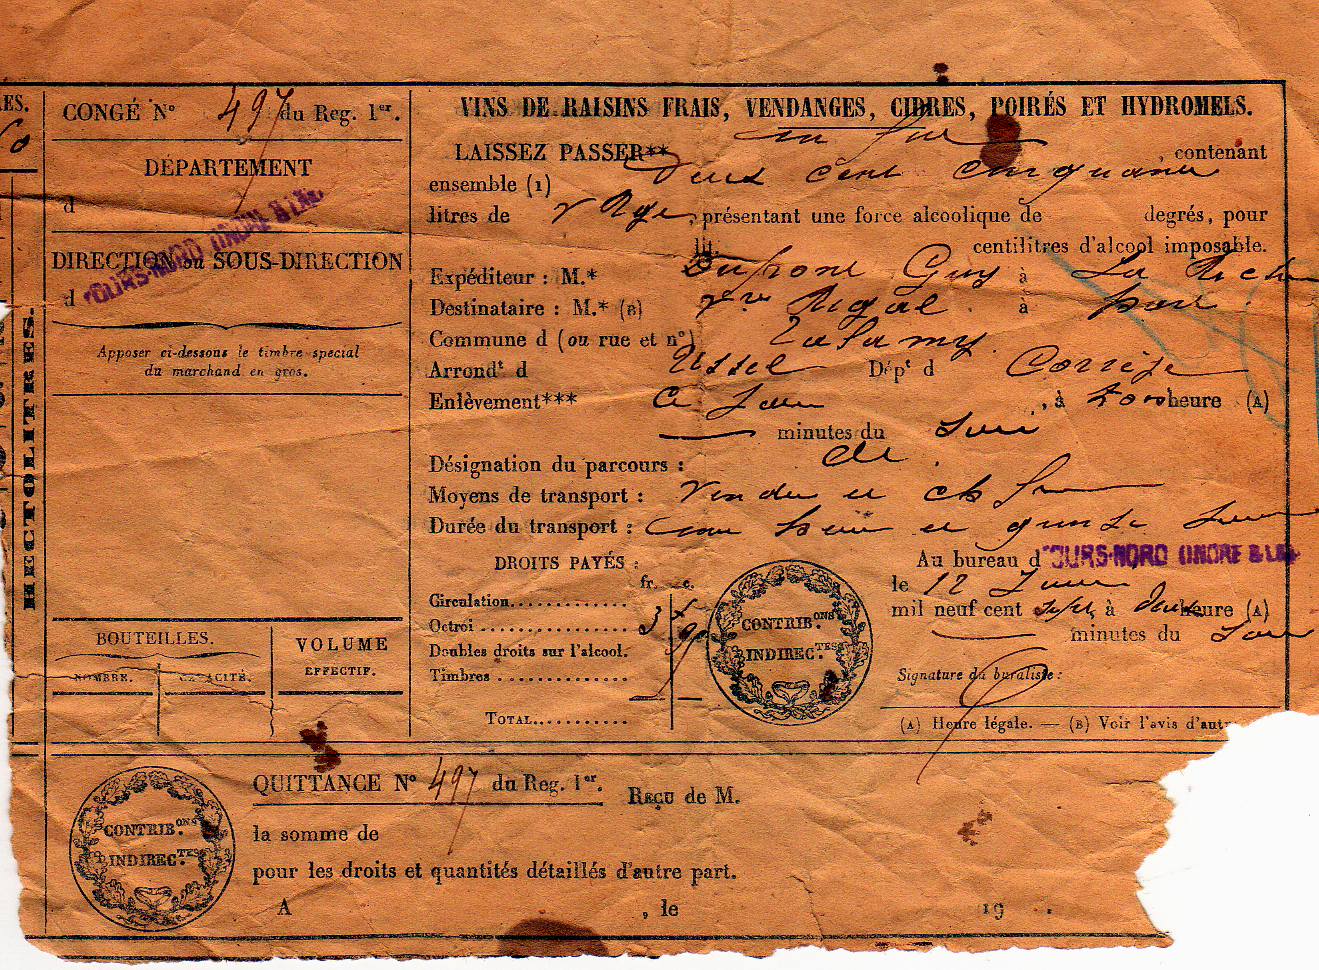 CONGÉ N° 497 du Reg. 1er.
DÉPARTEMENT
d
TOURS-NORD (INDRE & L
DIRECTION ou SOUS-DIRECTION
d
Apposer ci-dessous le timbre spécial
du marchand en gros.
HECTOLITRES.
BOUTEILLES.
NOMBRE.
CAPACITÉ.
VOLUME
EFFECTIF.
VINS DE RAISINS FRAIS, VENDANGES, CIDRES, POIRÉS ET HYDROMELS.
LAISSEZ PASSER** un fut , contenant
ensemble (1) Deux cent cinquante
litres de , présentant une force alcoolique de degrés, pour
centilitres d'alcool imposable.
Expéditeur : M.* Dupont Guy à La Riche
Destinataire : M.* (B) Rigal à
Commune d (ou rue et n°)
Arrondt d Ussel Dépt d Corrèze
Enlèvement*** Ce jour , à heure (A)
minutes du soir
Désignation du parcours :
Moyens de transport :
Durée du transport :
DROITS PAYÉS :
fr. c.
Circulation
Octroi
Doubles droits sur l'alcool.
Timbres
TOTAL
CONTRIB.ONS
INDIREC.TES
Au bureau d TOURS-NORD (INDRE & L
le 12
mil neuf cent sept, à deux heure (A)
minutes du soir
Signature du buraliste :
(A) Heure légale. — (B) Voir l'avis d'autr
QUITTANCE N° 497 du Reg. 1er.
REÇU de M.
CONTRIB.ONS
INDIREC.TES
la somme de
pour les droits et quantités détaillés d'autre part.
A , le 19 .